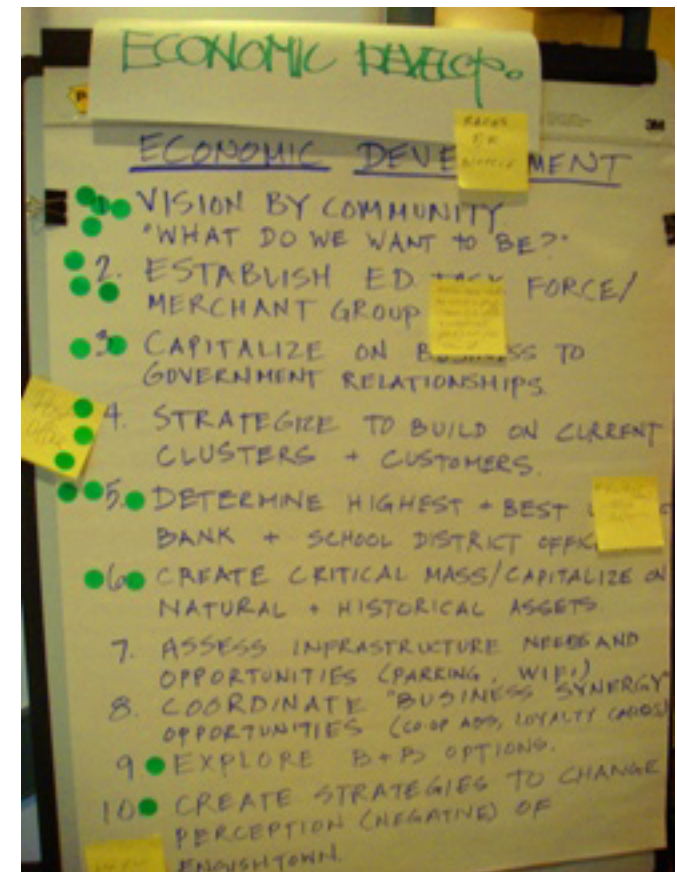 ECONOMIC DEVELOP.
3M
ECONOMIC DEVE MENT
1. VISION BY COMMUNITY
"WHAT DO WE WANT TO BE?"
2. ESTABLISH ED TASK FORCE/
MERCHANT GROUP
3. CAPITALIZE ON BUSINESS TO
GOVERNMENT RELATIONSHIPS.
Post
Office
4. STRATEGIZE TO BUILD ON CURRENT
CLUSTERS + CUSTOMERS.
5. DETERMINE HIGHEST + BEST
BANK + SCHOOL DISTRICT OFFIC
6. CREATE CRITICAL MASS/CAPITALIZE ON
NATURAL + HISTORICAL ASSETS.
7. ASSESS INFRASTRUCTURE NEEDS AND
OPPORTUNITIES (PARKING, WIFI)
8. COORDINATE "BUSINESS SYNERGY"
OPPORTUNITIES (CO-OP ADS, LOYALTY CARDS)
9 EXPLORE B+B OPTIONS.
10 CREATE STRATEGIES TO CHANGE
PERCEPTION (NEGATIVE) OF
ENGISHTOWN.